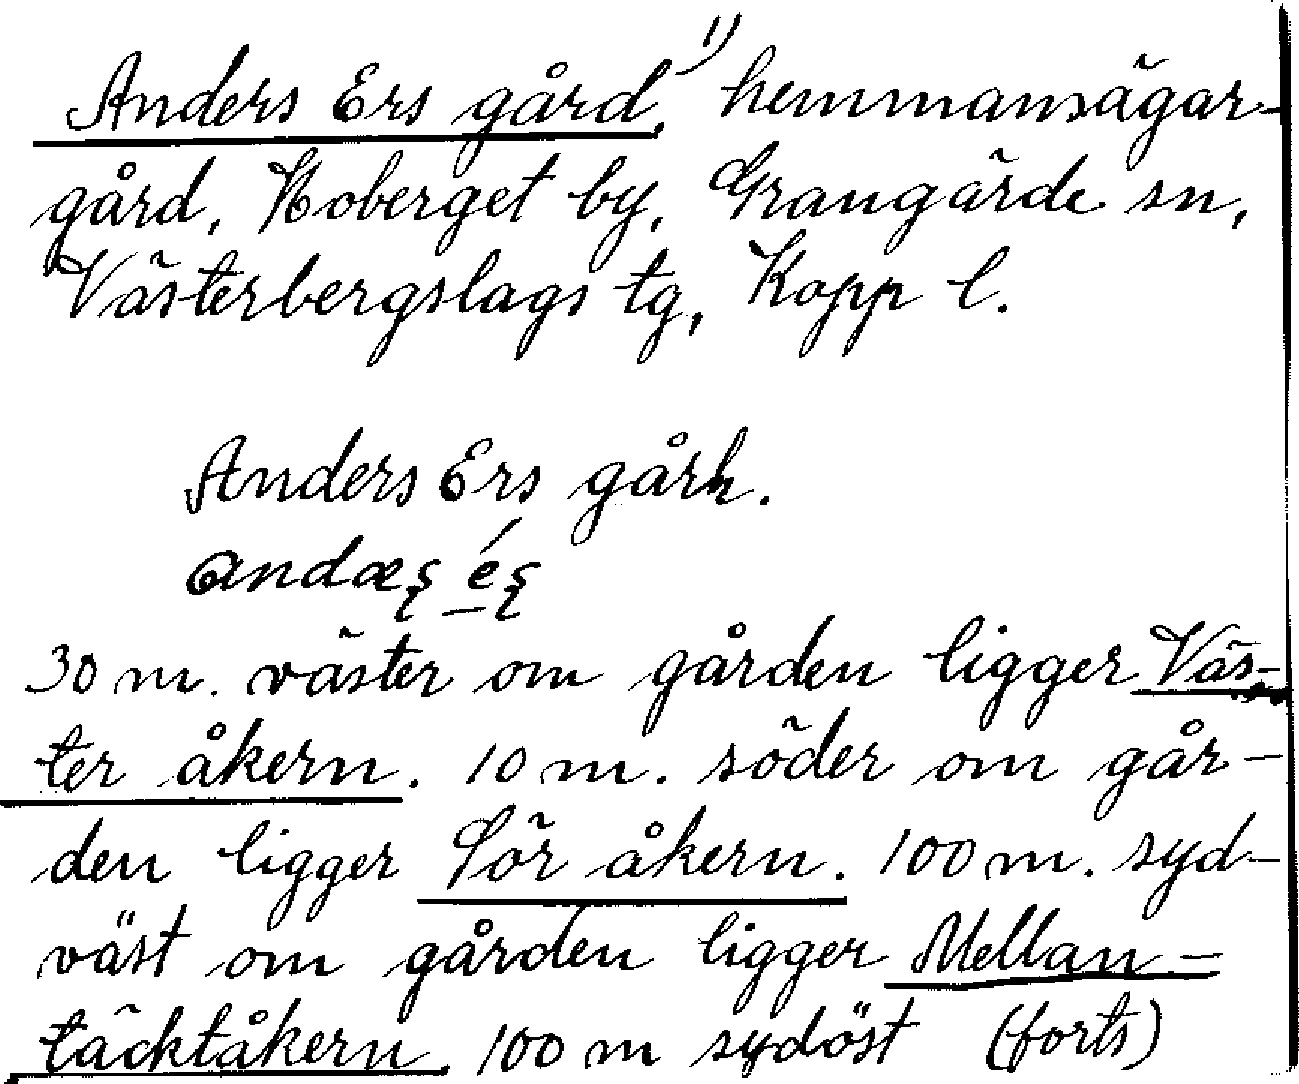 Anders Ers gård, 1) hemmansägar-
gård, Hoberget by, Grangärde sn,
Västerbergslags tg, Kopp l.
Anders Ers gårn.
andæș éș
30 m. väster om gården ligger Väs-
ter åkern. 10 m. söder om går-
den ligger Sör åkern. 100 m. syd-
väst om gården ligger Mellan-
täcktåkern. 100 m sydöst (forts)